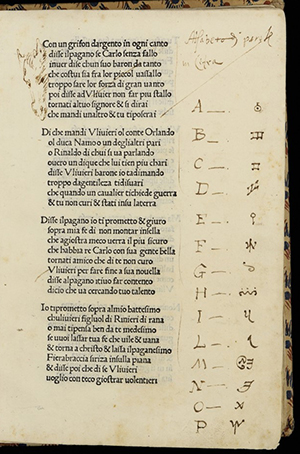 Con un grifon dargento in ogni canto
disse ilpagano se Carlo senza fallo
inuer disse chun suo baron da tanto
che costui sia fra lor piccol uassallo
troppo sare lor forza di gran uanto
poi disse ad Vliuier non far piu stallo
tornati altuo signore & si dirai
che mandi unaltro & tu tiposerai
Di che mandi Vliuieri ol conte Orlando
ol duca Namo o un deglialtri pari
o Rinaldo di chui si ua parlando
ouero un dique chi lui tien piu chari
disse Vliuieri barone io tadimando
troppo dagentileza tidisuari
che quando un caualier tichiede guerra
& tu non curi & stati insu laterra
Disse ilpagano io ti prometto & giuro
sopra mia fe di non montar insella
che agiostra meco uerra il piu sicuro
che habbia re Carlo con sua gente bella
tornati amico che di te non curo
Vliuieri per fare fine a sua nouella
disse alpagano atiuo far contento
dicio che ua cercando tuo talento
Io tiprometto sopra almio battesimo
chuliuieri figluol di Rinieri di rana
o mai tipensa ben da te medesimo
se uuoi lassar tua fe che uile & uana
& torna a christo & lassa ilpaganesimo
Fierabraccia siriza insulla piana
& disse poi che di se Vliuieri
uoglio con teco giostrar uolentieri
Alfabeto di
A
B
C
D
E
F
G
H
I
L
M
N
O
P